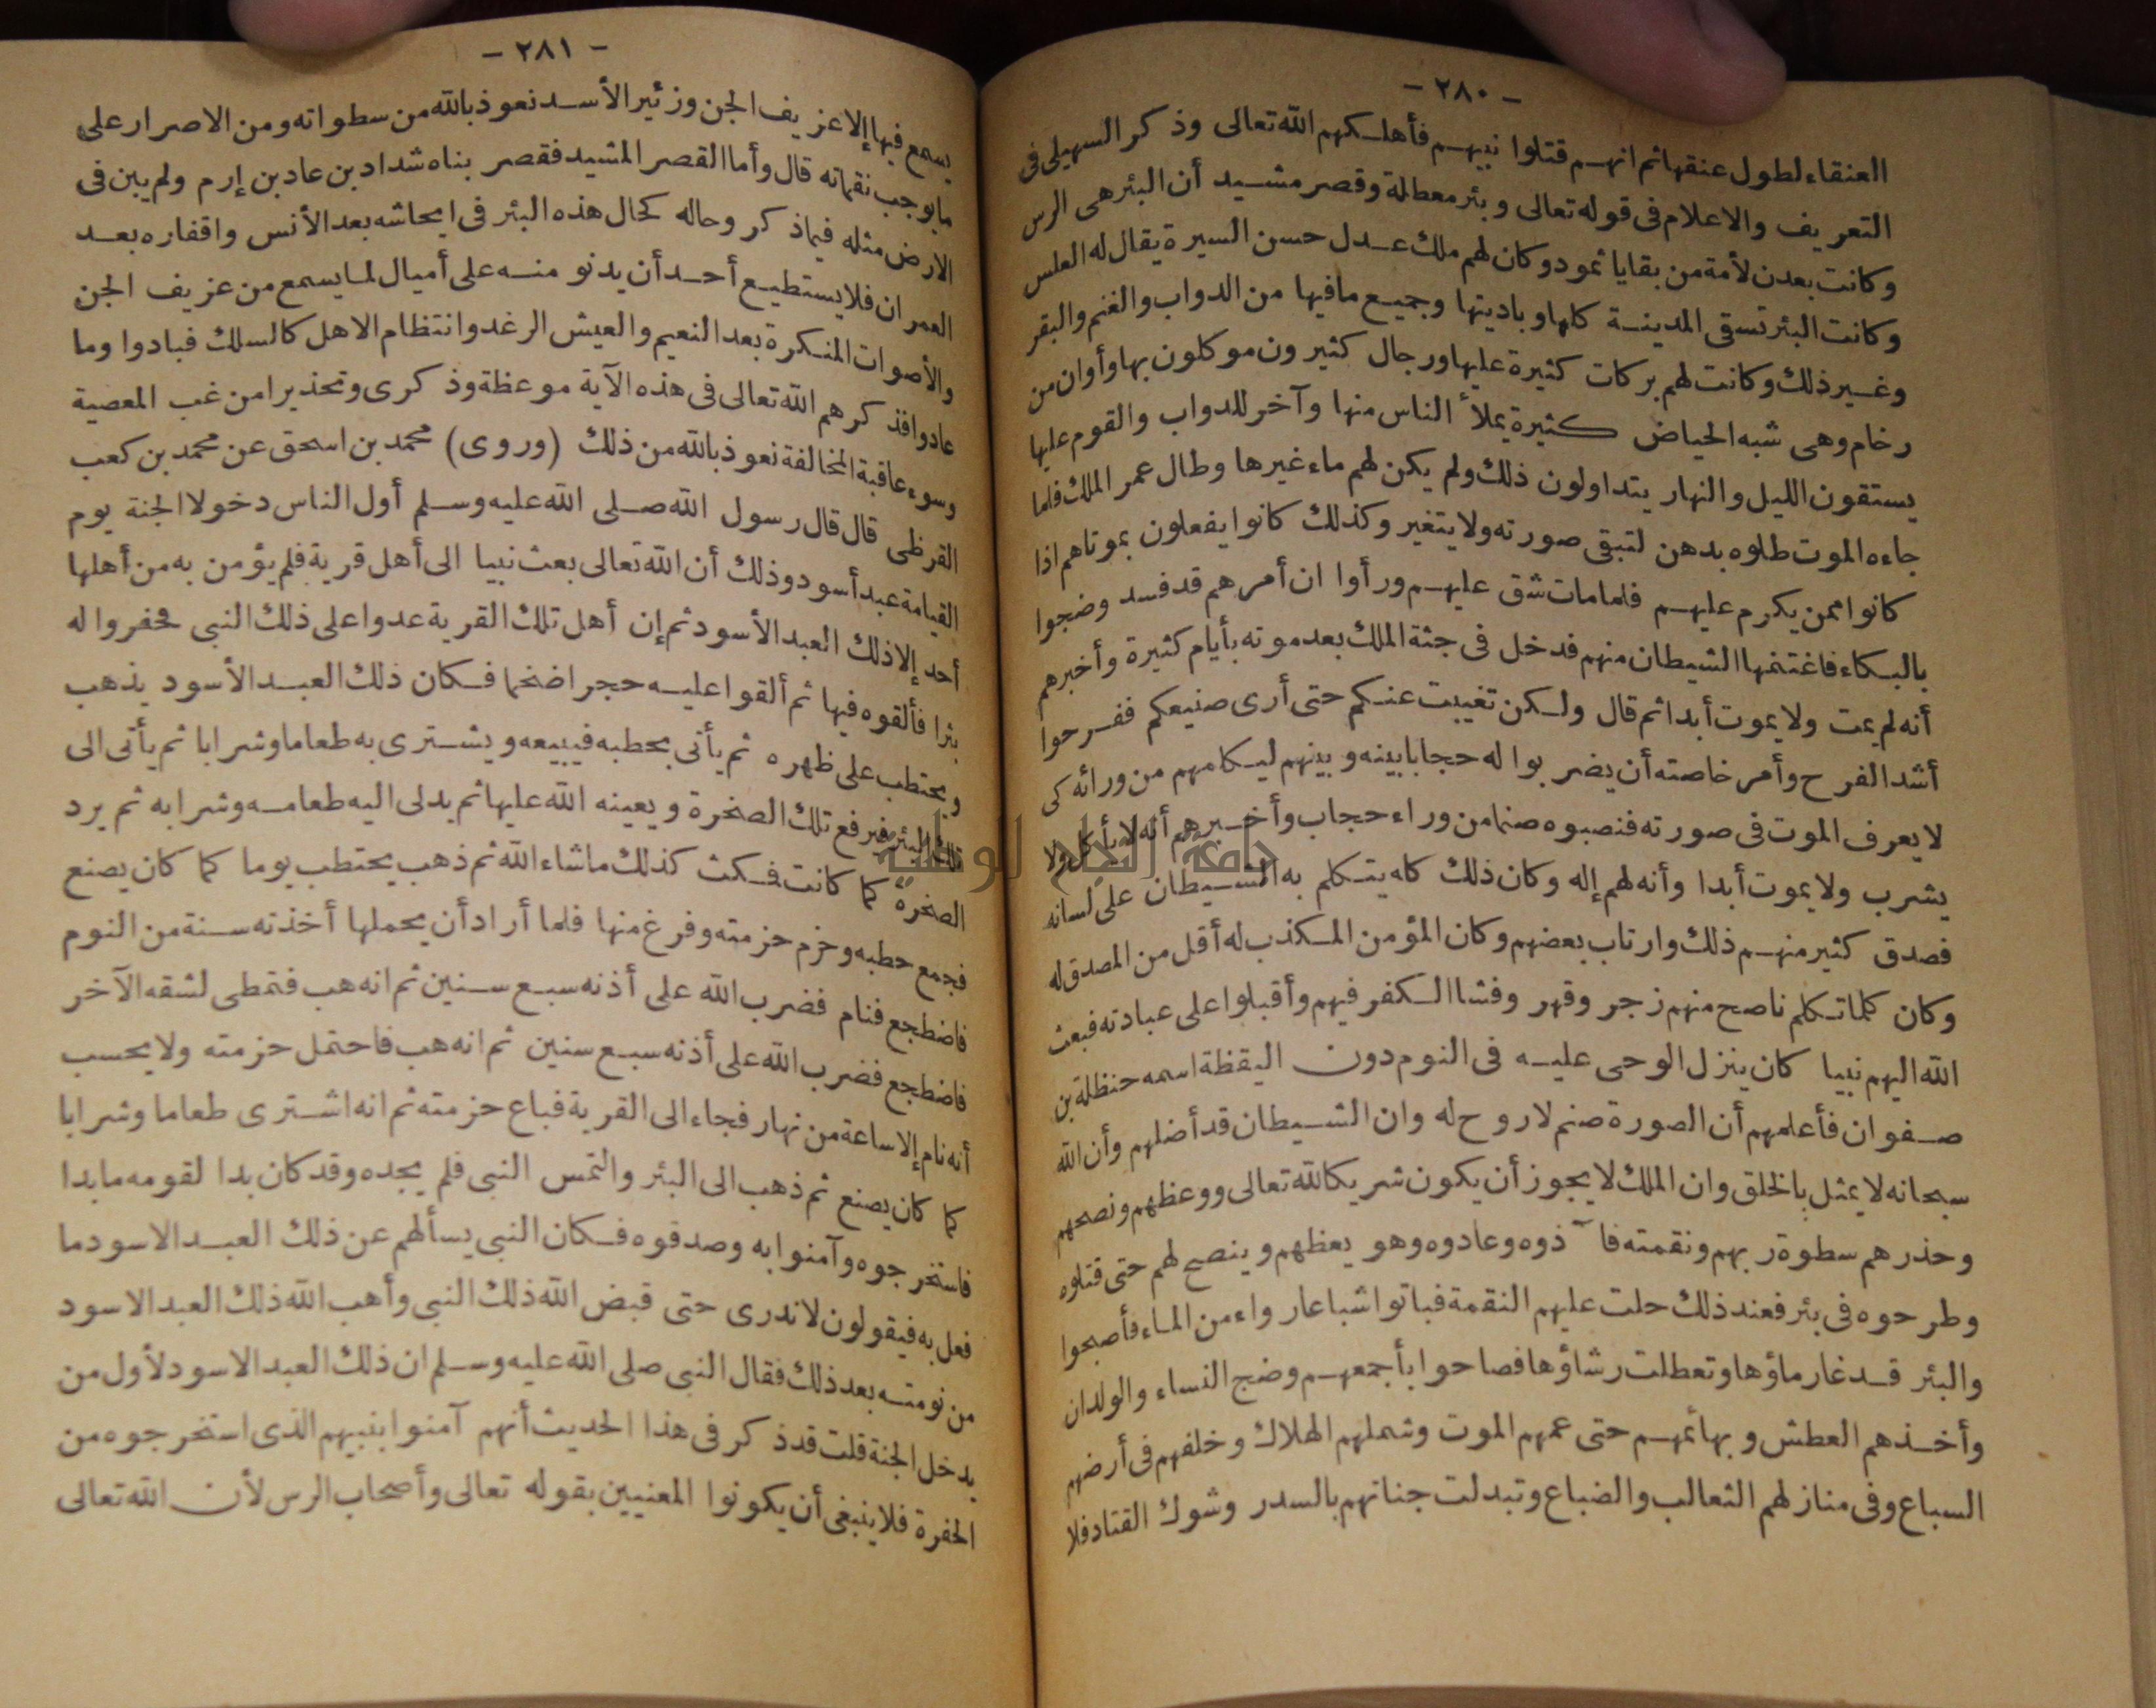 - ٢٨٠ -
العنقاء لطول عنقها ثم انهم قتلوا نبيهم فأهلكهم الله تعالى وذكر السهيلى فى
التعريف والاعلام فى قوله تعالى وبئر معطلة وقصر مشيد أن البئر هى الرس
وكانت بعدن لأمة من بقايا ثمود وكان لهم ملك عدل حسن السيرة يقال له العلس
وكانت البئر تسقى المدينة كلها وباديتها وجميع ما فيها من الدواب والغنم والبقر
وغير ذلك وكانت لهم بركات كثيرة عليها ورجال كثيرون موكلون بها وأوان من
رخام وهى شبه الحياض كثيرة يملأ الناس منها وآخر للدواب والقوم عليها
يستقون الليل والنهار يتداولون ذلك ولم يكن لهم ماء غيرها وطال عمر الملك فلما
جاءه الموت طلوه بدهن لتبقى صورته ولا يتغير وكذلك كانوا يفعلون بموتاهم اذا
كانوا ممن يكرم عليهم فلما مات شق عليهم ورأوا ان أمرهم قد فسد وضجوا
بالبكاء فاغتنمها الشيطان منهم فدخل فى جثة الملك بعد موته بأيام كثيرة وأخبرهم
أنه لم يمت ولا يموت أبدا ثم قال ولكن تغيبت عنكم حتى أرى صنيعكم ففرحوا
أشد الفرح وأمر خاصته أن يضربوا له حجابا بينه وبينهم ليكلمهم من ورائه كى
لا يعرف الموت فى صورته فنصبوه صنما من وراء حجاب وأخبرهم أنه لا يأكل ولا
يشرب ولا يموت أبدا وأنه لهم إله وكان ذلك كله يتكلم به الشيطان على لسانه
فصدق كثير منهم ذلك وارتاب بعضهم وكان المؤمن المكذب له أقل من المصدق له
وكان كلما تكلم ناصح منهم زجر وقهر وفشا الكفر فيهم وأقبلوا على عبادته فبعث
الله اليهم نبيا كان ينزل الوحى عليه فى النوم دون اليقظة اسمه حنظلة بن
صفوان فأعلمهم أن الصورة صنم لا روح له وان الشيطان قد أضلهم وأن الله
سبحانه لا يمثل بالخلق وان الملك لا يجوز أن يكون شريكا لله تعالى ووعظهم ونصحهم
وحذرهم سطوة ربهم ونقمته فآذوه وعادوه وهو يعظهم وينصح لهم حتى قتلوه
وطرحوه فى بئر فعند ذلك حلت عليهم النقمة فباتوا شباعا رواء من الماء فأصبحوا
والبئر قد غار ماؤها وتعطلت رشاؤها فصاحوا بأجمعهم وضج النساء والولدان
وأخذهم العطش وبهائمهم حتى عمهم الموت وشملهم الهلاك وخلفهم فى أرضهم
السباع وفى منازلهم الثعالب والضباع وتبدلت جناتهم بالسدر وشوك القتاد فلا
- ٢٨١ -
يسمع فيها إلا عزيف الجن وزئير الأسد نعوذ بالله من سطواته ومن الاصرار على
ما يوجب نقماته قال وأما القصر المشيد فقصر بناه شداد بن عاد بن إرم ولم يبن فى
الارض مثله فيما ذكر وحاله كحال هذه البئر فى ايحاشه بعد الأنس واقفاره بعد
العمران فلا يستطيع أحد أن يدنو منه على أميال لما يسمع من عزيف الجن
والأصوات المنكرة بعد النعيم والعيش الرغد وانتظام الاهل كالسلك فبادوا وما
عادوا فذكرهم الله تعالى فى هذه الآية موعظة وذكرى وتحذيرا من غب المعصية
وسوء عاقبة المخالفة نعوذ بالله من ذلك (وروى) محمد بن اسحق عن محمد بن كعب
القرظى قال قال رسول الله صلى الله عليه وسلم أول الناس دخولا الجنة يوم
القيامة عبد أسود وذلك أن الله تعالى بعث نبيا الى أهل قرية فلم يؤمن به من أهلها
أحد إلا ذلك العبد الأسود ثم إن أهل تلك القرية عدوا على ذلك النبى فحفروا له
بئرا فألقوه فيها ثم ألقوا عليه حجرا ضخما فكان ذلك العبد الأسود يذهب
ويحتطب على ظهره ثم يأتى بحطبه فيبيعه ويشترى به طعاما وشرابا ثم يأتى الى
تلك البئر فيرفع تلك الصخرة ويعينه الله عليها ثم يدلى اليه طعامه وشرابه ثم يرد
الصخرة كما كانت فمكث كذلك ما شاء الله ثم ذهب يحتطب يوما كما كان يصنع
فجمع حطبه وحزم حزمته وفرغ منها فلما أراد أن يحملها أخذته سنة من النوم
فاضطجع فنام فضرب الله على أذنه سبع سنين ثم انه هب فتمطى لشقه الآخر
فاضطجع فضرب الله على أذنه سبع سنين ثم انه هب فاحتمل حزمته ولا يحسب
أنه نام إلا ساعة من نهار فجاء الى القرية فباع حزمته ثم انه اشترى طعاما وشرابا
كما كان يصنع ثم ذهب الى البئر والتمس النبى فلم يجده وقد كان بدا لقومه ما بدا
فاستخرجوه وآمنوا به وصدقوه فكان النبى يسألهم عن ذلك العبد الاسود ما
فعل به فيقولون لا ندرى حتى قبض الله ذلك النبى وأهب الله ذلك العبد الاسود
من نومته بعد ذلك فقال النبى صلى الله عليه وسلم ان ذلك العبد الاسود لأول من
يدخل الجنة قلت قد ذكر فى هذا الحديث أنهم آمنوا بنبيهم الذى استخرجوه من
الحفرة فلا ينبغى أن يكونوا المعنيين بقوله تعالى وأصحاب الرس لأن الله تعالى
جامعة النجاح الوطنية